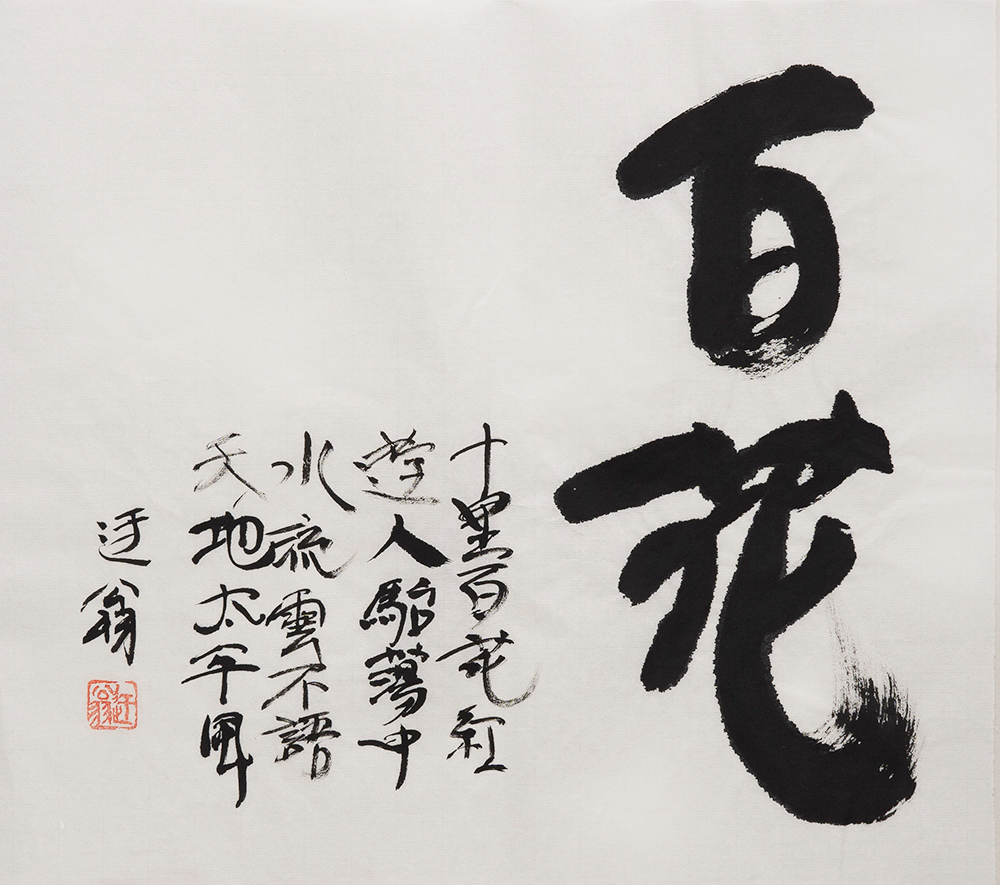 百花
十里百花紅
遊人駘蕩中
水流雲不語
天地太平風
迂翁
迂翁